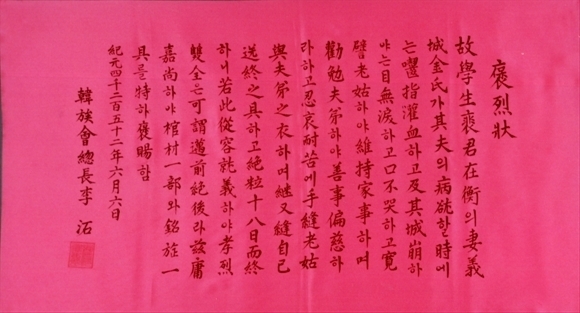 褒烈狀
故學生裵君在衡의妻義
城金氏가其夫의病兢할時에
는囓指灌血하고及其城崩하
야는目無淚하고口不哭하고寬
譬老姑하야維持家事하며
勸勉夫第하야善事偏慈하
라하고忍哀耐苦에手縫老姑
與夫第之衣하며継又縫自己
送終之具하고絶粒十八日而終
하니若此從容就義하야孝烈
雙全은可謂邁前絶後라玆庸
嘉尙하야棺材一部와銘旌一
具를特히褒賜함
紀元四千二百五十二年六月六日
韓族會總長李沰